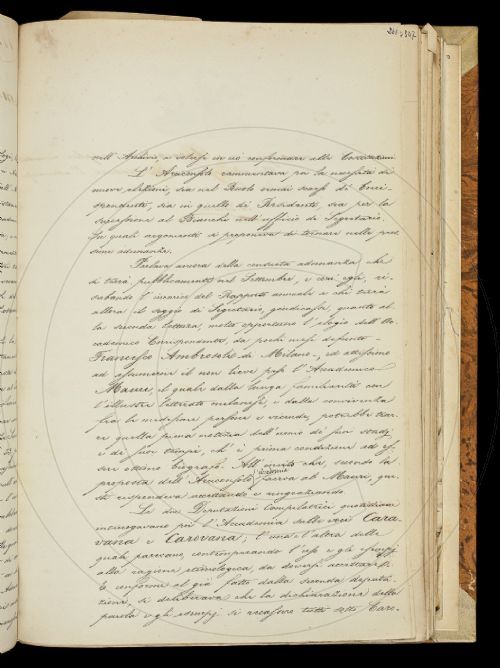 nell'Archivio, e volersi in ciò conformare alle Costituzioni.
L'Arciconsolo rammentava poi la necessità di
nuove elezioni, sia nel Ruolo ormai scarso di Corri-
spondenti, sia in quello di Residenti, sia per la
successione al Bianchi nell'ufficio di Segretario.
Su quali argomenti si proponeva di tornare nella pros-
sima adunanza.
Parlava ancora della consueta adunanza che
si terrà pubblicamente nel Settembre, e com'egli, ri-
serbando l'incarico del Rapporto annuale a chi terrà
allora il seggio di Segretario, giudicasse, quanto al-
la seconda lettura, molto opportuno l'elogio dell'Ac-
cademico Corrispondente, da pochi mesi defunto
Francesco Ambrosoli di Milano, ed attissimo
ad assumerne il non lieve peso l'Accademico
Mauri, il quale dalla lunga familiarità con
l'illustre letterato milanese, e dalla conoscenza
fra le medesime persone e vicende, potrebbe trar-
re quella piena notizia dell'uomo de' suoi studj
e de' suoi tempi, ch'è prima condizione ad es-
sere ottimo biografo. All'invito che, secondo la
proposta dell'Arciconsolo, l'Accademia faceva al Mauri, que-
sti rispondeva accettando e ringraziando.
Le due Deputazioni Compilatrici quotidiane
interrogavano poi l'Accademia sulle voci Cara-
vana e Carovana; l'una e l'altra delle
quali parevano, contrappesando l'uso e gli esempj
alla ragione etimologica, da doversi accettare.
E conforme al già fatto dalla seconda deputa-
zione, si deliberava che la dichiarazione della
parola e gli esempj si recassero tutti sotto Caro-